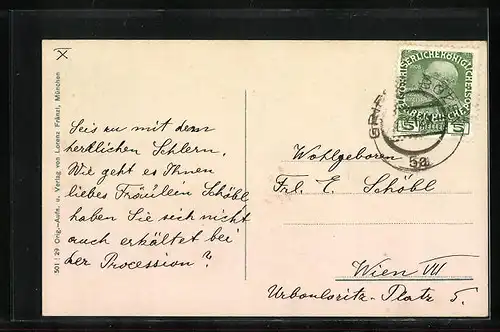 X
501 | 29 Orig.-Aufn. u. Verlag von Lorenz Fränzl, München
Seis ru mit dem
herrlichen Schlern.
Wie geht es Ihnen
liebes Fräulein Schöbl
haben Sie sich nicht
auch erkältet bei
der Procession?
KAISERLICHE KÖNIGLICHE
5 5
GRIES BOZ
5a
Wohlgeboren
Frl. E. Schöbl
Wien VII
Urbanloritz-Platz 5.